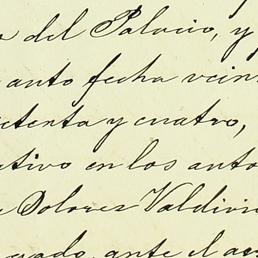 del Palacio, y
auto fecha vein
etenta y cuatro,
tivo en los auto
Dolores Valdivi
ado, ante el a